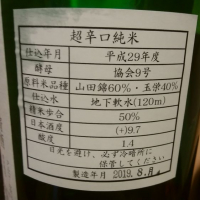 超辛口純米
仕込年月 平成29年度
酵母 協会9号
原料米品種 山田錦60%・玉栄40%
仕込水 地下軟水(120m)
精米歩合 50%
日本酒度 (+)9.7
酸度 1.4
日光を避け、必ず冷暗所に
保管してください
製造年月 2019. 8月